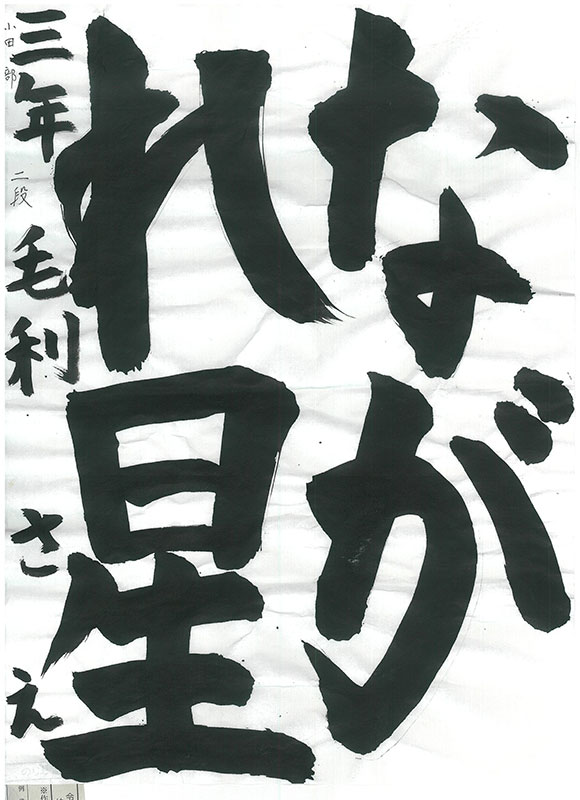 なが
れ星
三年 毛利 さえ
小田部 二段